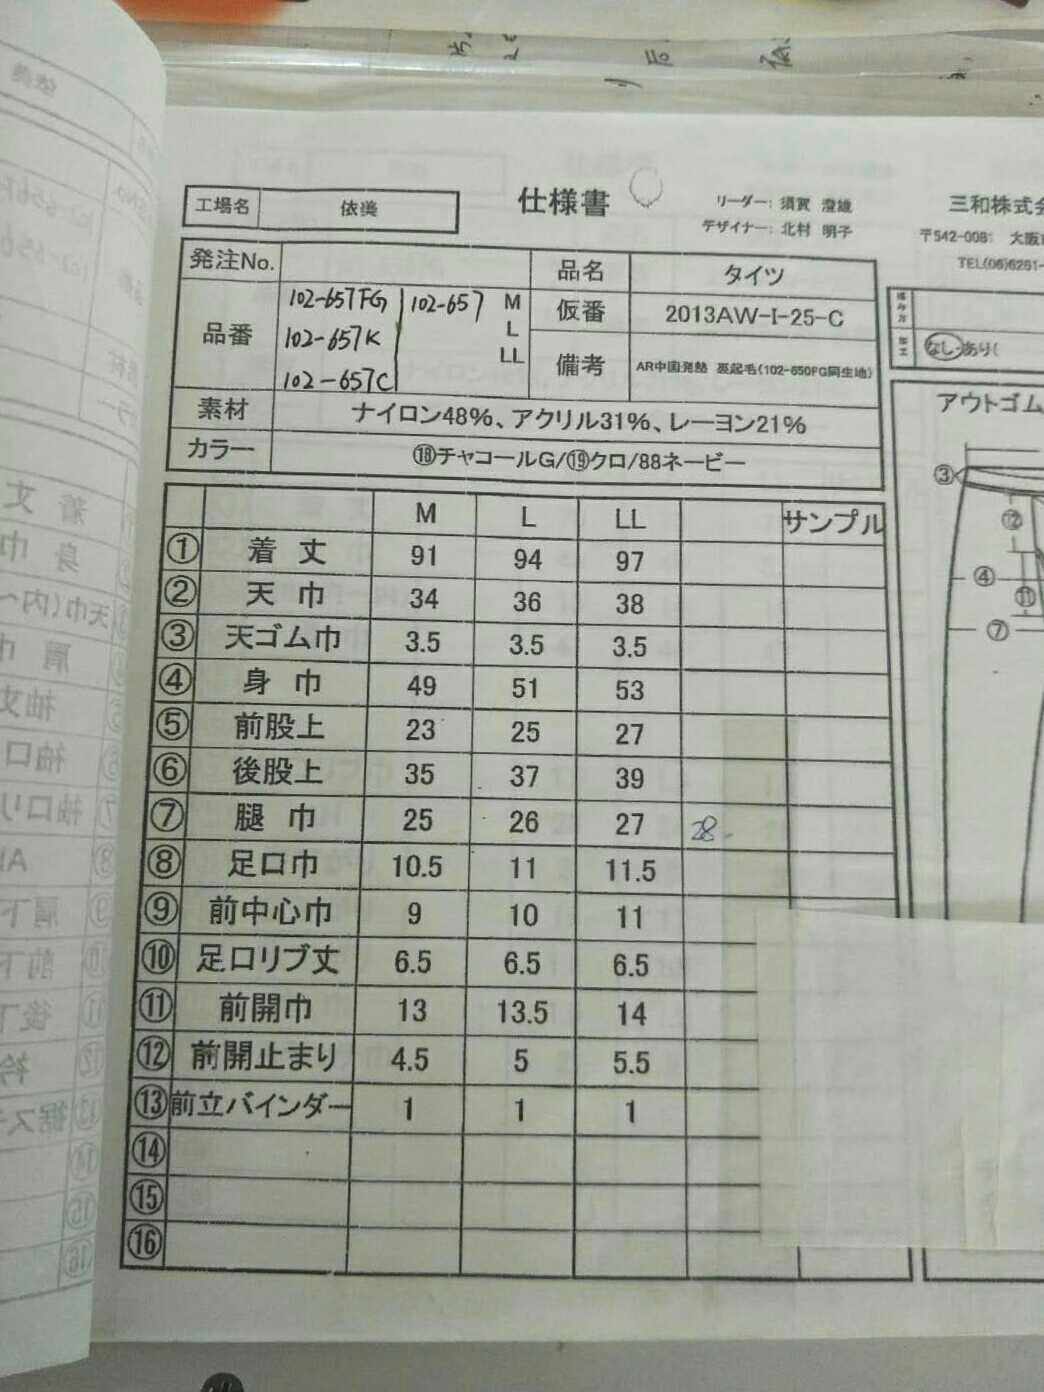 工場名 依美
仕様書
リーダー: 須賀 澄雄
デザイナー: 北村 明子
三和株式会
〒542-0081 大阪
TEL(06)6251-
発注No.
品名 タイツ
品番
102-657FG 102-657 M
102-657K L
102-657C LL
仮番 2013AW-I-25-C
備考 AR中国発熱 裏起毛(102-650FG同生地)
素材 ナイロン48%、アクリル31%、レーヨン21%
カラー ⑱チャコールG/⑲クロ/88ネービー
加工 なし・あり(
アウトゴム
③
⑫
④
⑪
⑦
M L LL サンプル
① 着 丈 91 94 97
② 天 巾 34 36 38
③ 天ゴム巾 3.5 3.5 3.5
④ 身 巾 49 51 53
⑤ 前股上 23 25 27
⑥ 後股上 35 37 39
⑦ 腿 巾 25 26 27 28
⑧ 足口巾 10.5 11 11.5
⑨ 前中心巾 9 10 11
⑩ 足口リブ丈 6.5 6.5 6.5
⑪ 前開巾 13 13.5 14
⑫ 前開止まり 4.5 5 5.5
⑬ 前立バインダー 1 1 1
⑭
⑮
⑯